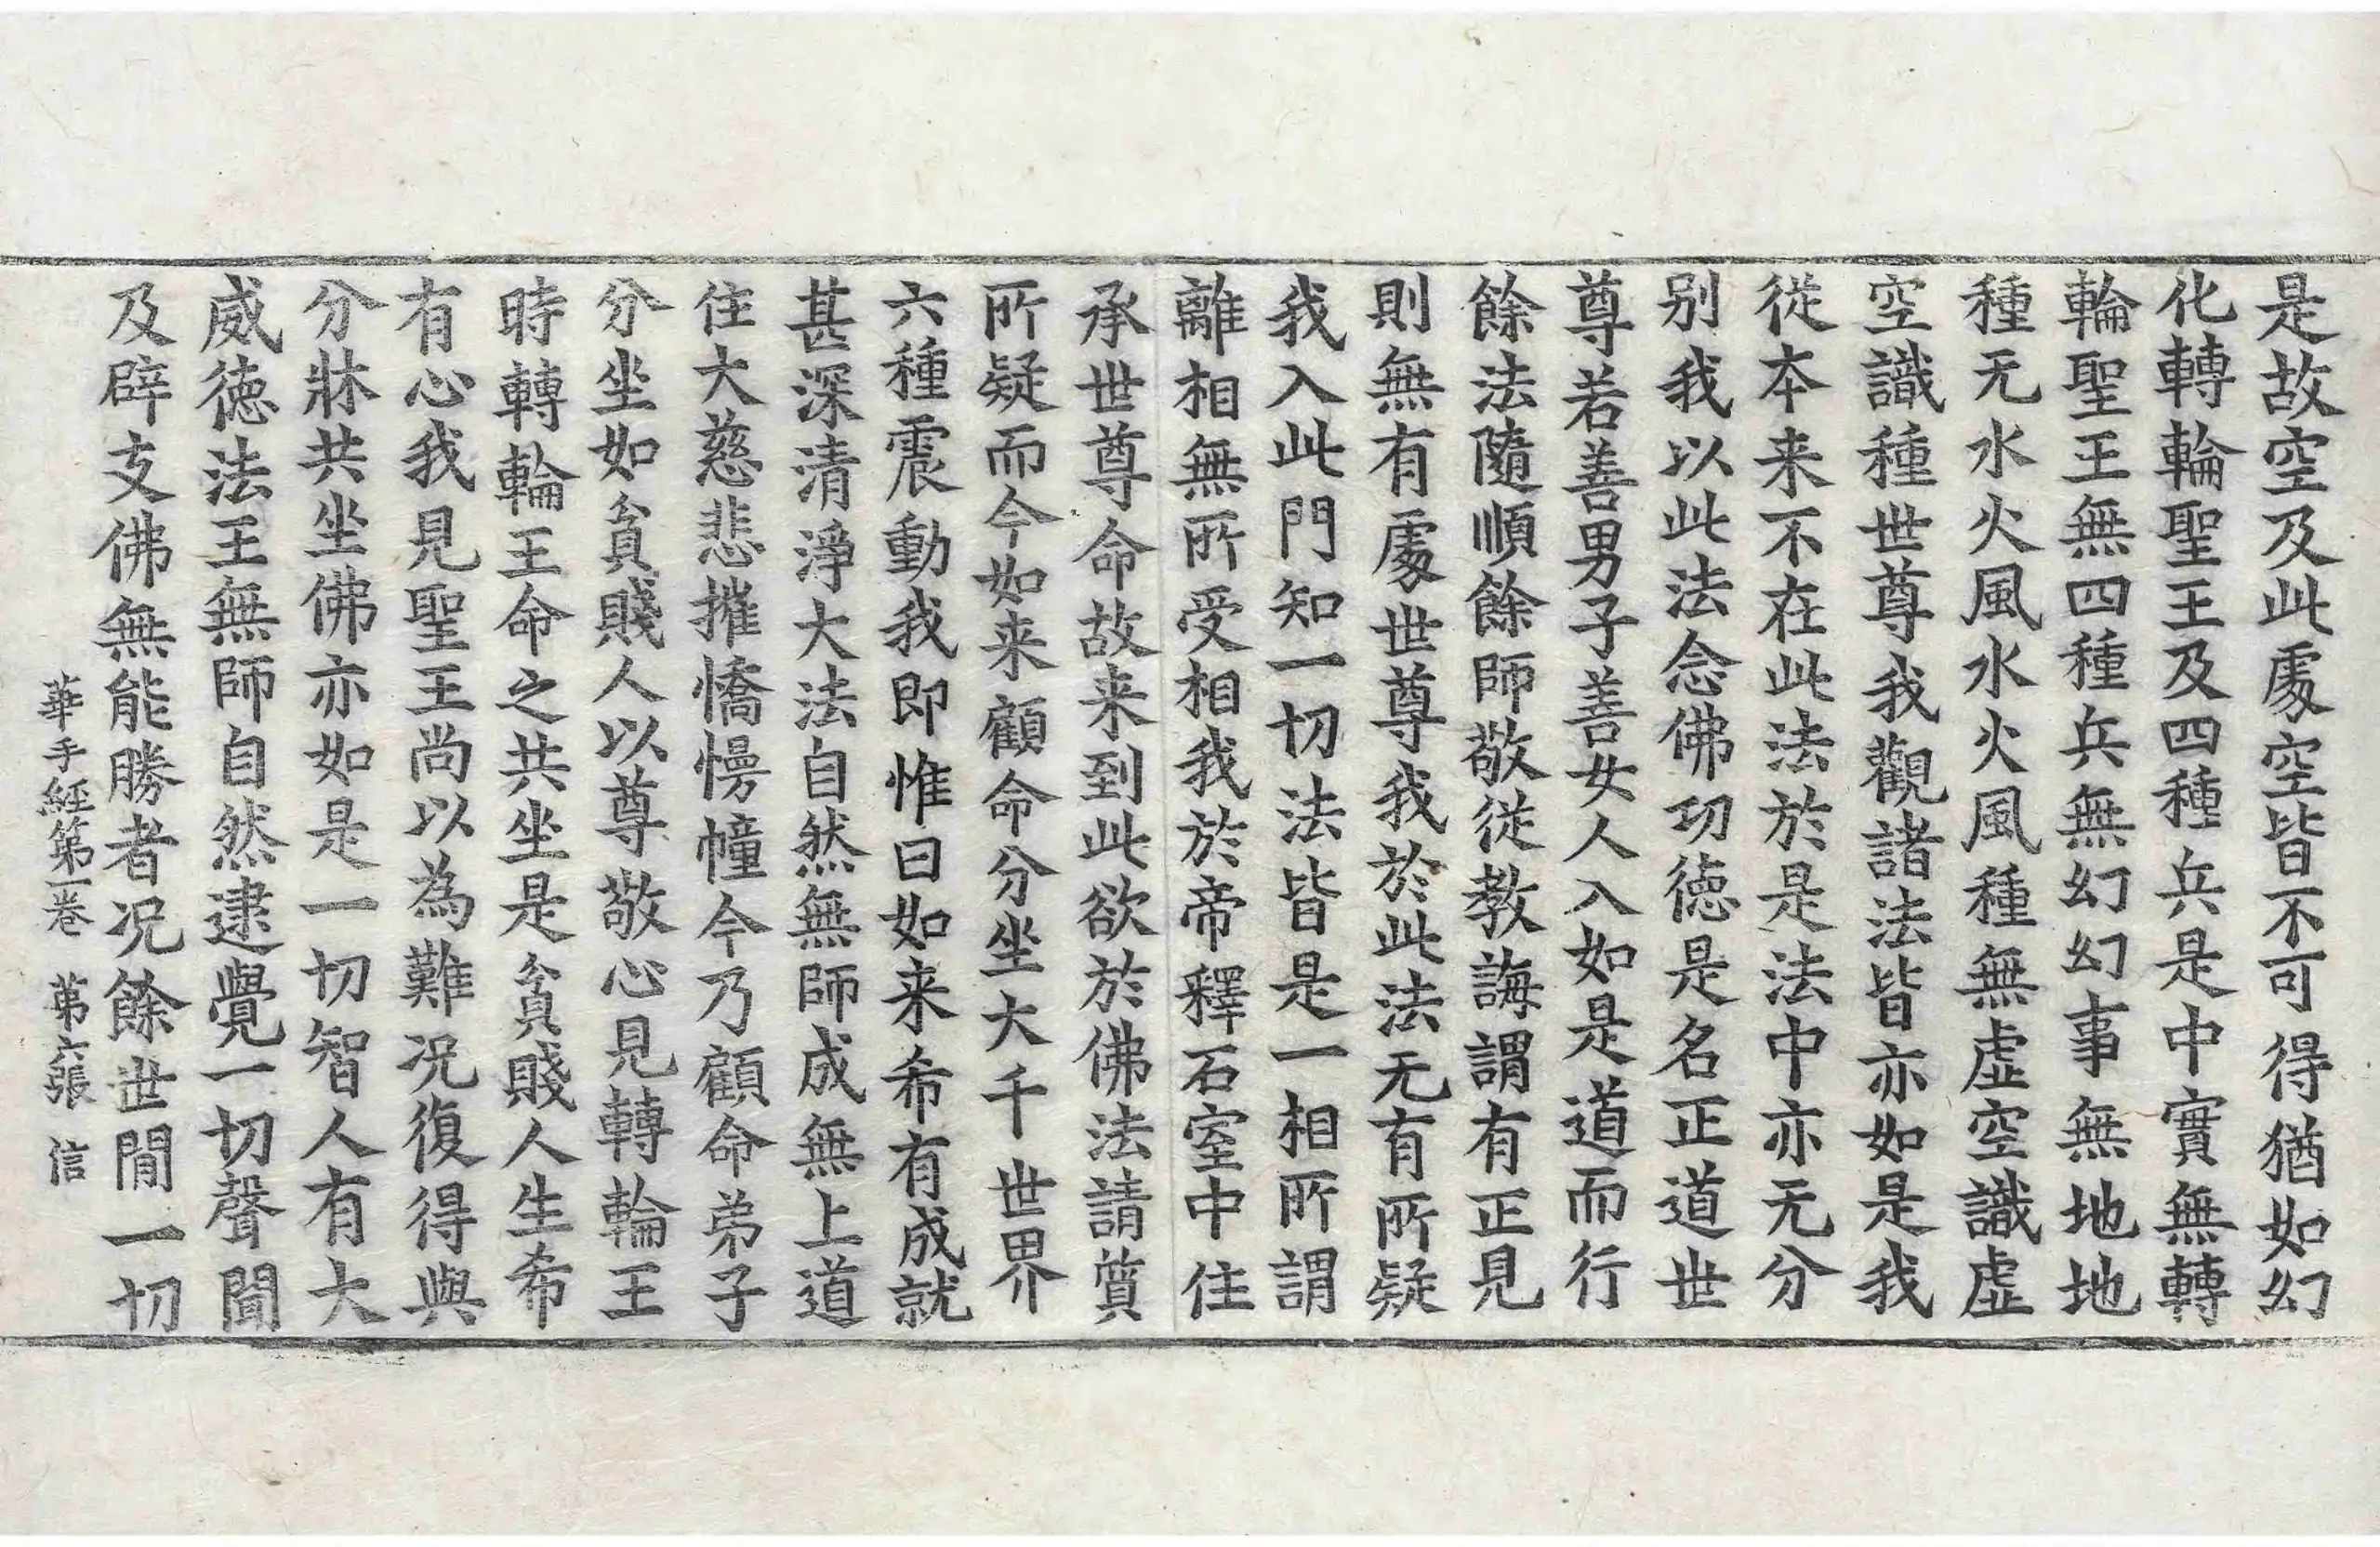 是故空及此處空皆不可得猶如幻
化轉輪聖王及四種兵是中實無轉
輪聖王無四種兵無幻幻事無地地
種无水火風水火風種無虛空識虛
空識種世尊我觀諸法皆亦如是我
從本来不在此法於是法中亦无分
别我以此法念佛功德是名正道世
尊若善男子善女人入如是道而行
餘法隨順餘師敬從教誨謂有正見
則無有處世尊我於此法无有所疑
我入此門知一切法皆是一相所謂
離相無所受相我於帝釋石室中住
承世尊命故来到此欲於佛法請質
所疑而今如来顧命分坐大千世界
六種震動我即惟曰如来希有成就
甚深清淨大法自然無師成無上道
住大慈悲摧憍慢幢今乃顧命弟子
分坐如貧賤人以尊敬心見轉輪王
時轉輪王命之共坐是貧賤人生希
有心我見聖王尚以為難况復得與
分牀共坐佛亦如是一切智人有大
威德法王無師自然逮覺一切聲聞
及辟支佛無能勝者况餘世間一切
華手經第一卷 第六張 信